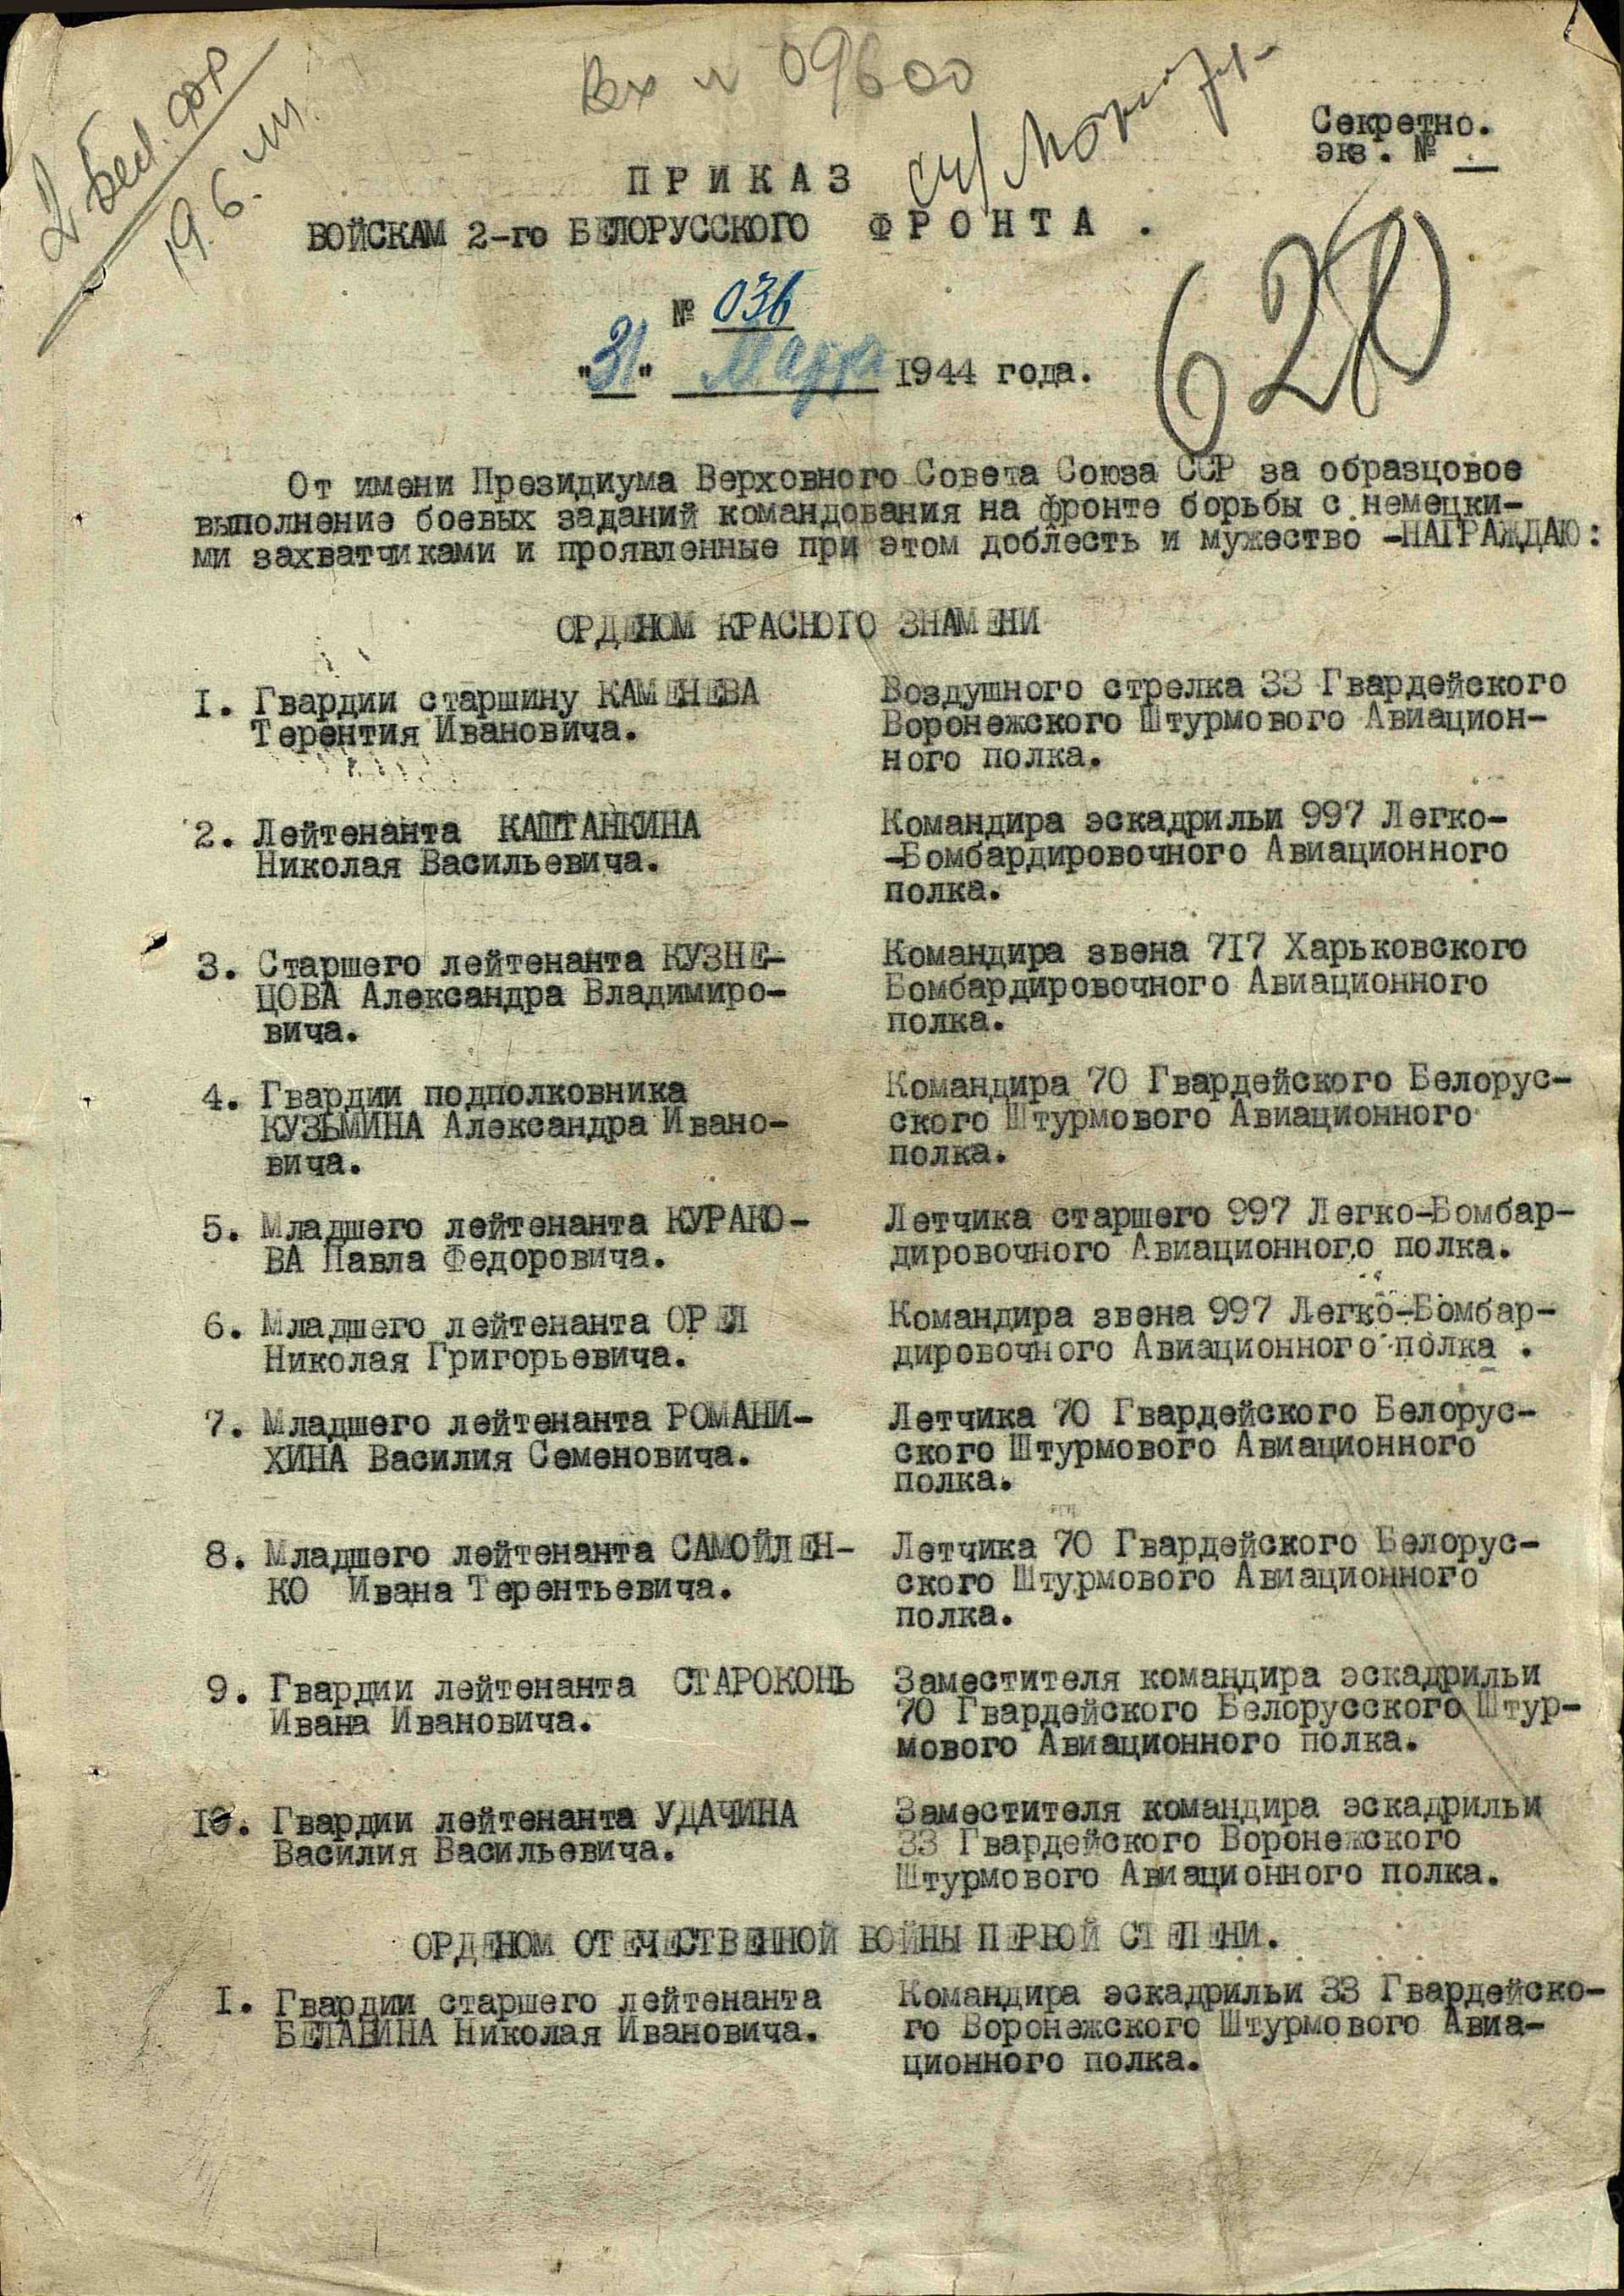 2 Бел. фр
19.6.
Вх № 09600
Секретно.
экз. №
ПРИКАЗ
ВОЙСКАМ 2-го БЕЛОРУССКОГО ФРОНТА .
№ 036
"31" Марта 1944 года.
От имени Президиума Верховного Совета Союза ССР за образцовое
выполнение боевых заданий командования на фронте борьбы с немецки-
ми захватчиками и проявленные при этом доблесть и мужество -НАГРАЖДАЮ:
ОРДЕНОМ КРАСНОГО ЗНАМЕНИ
I. Гвардии старшину КАМЕНЕВА
Терентия Ивановича.
Воздушного стрелка 33 Гвардейского
Воронежского Штурмового Авиацион-
ного полка.
2. Лейтенанта КАШТАНКИНА
Николая Васильевича.
Командира эскадрильи 997 Легко-
-Бомбардировочного Авиационного
полка.
3. Старшего лейтенанта КУЗНЕ-
ЦОВА Александра Владимиро-
вича.
Командира звена 7I7 Харьковского
Бомбардировочного Авиационного
полка.
4. Гвардии подполковника
КУЗЬМИНА Александра Ивано-
вича.
Командира 70 Гвардейского Белорус-
ского Штурмового Авиационного
полка.
5. Младшего лейтенанта КУРАКО-
ВА Павла Федоровича.
Летчика старшего 997 Легко-Бомбар-
дировочного Авиационного полка.
6. Младшего лейтенанта ОРЕЛ
Николая Григорьевича.
Командира звена 997 Легко-Бомбар-
дировочного Авиационного полка .
7. Младшего лейтенанта РОМАНИ-
ХИНА Василия Семеновича.
Летчика 70 Гвардейского Белорус-
ского Штурмового Авиационного
полка.
8. Младшего лейтенанта САМОЙЛЕН-
КО Ивана Терентьевича.
Летчика 70 Гвардейского Белорус-
ского Штурмового Авиационного
полка.
9. Гвардии лейтенанта СТАРОКОНЬ
Ивана Ивановича.
Заместителя командира эскадрильи
70 Гвардейского Белорусского Штур-
мового Авиационного полка.
I0. Гвардии лейтенанта УДАЧИНА
Василия Васильевича.
Заместителя командира эскадрильи
33 Гвардейского Воронежского
Штурмового Авиационного полка.
ОРДЕНОМ ОТЕЧЕСТВЕННОЙ ВОЙНЫ ПЕРВОЙ СТЕПЕНИ.
I. Гвардии старшего лейтенанта
БЕЛАВИНА Николая Ивановича.
Командира эскадрильи 33 Гвардейско-
го Воронежского Штурмового Авиа-
ционного полка.